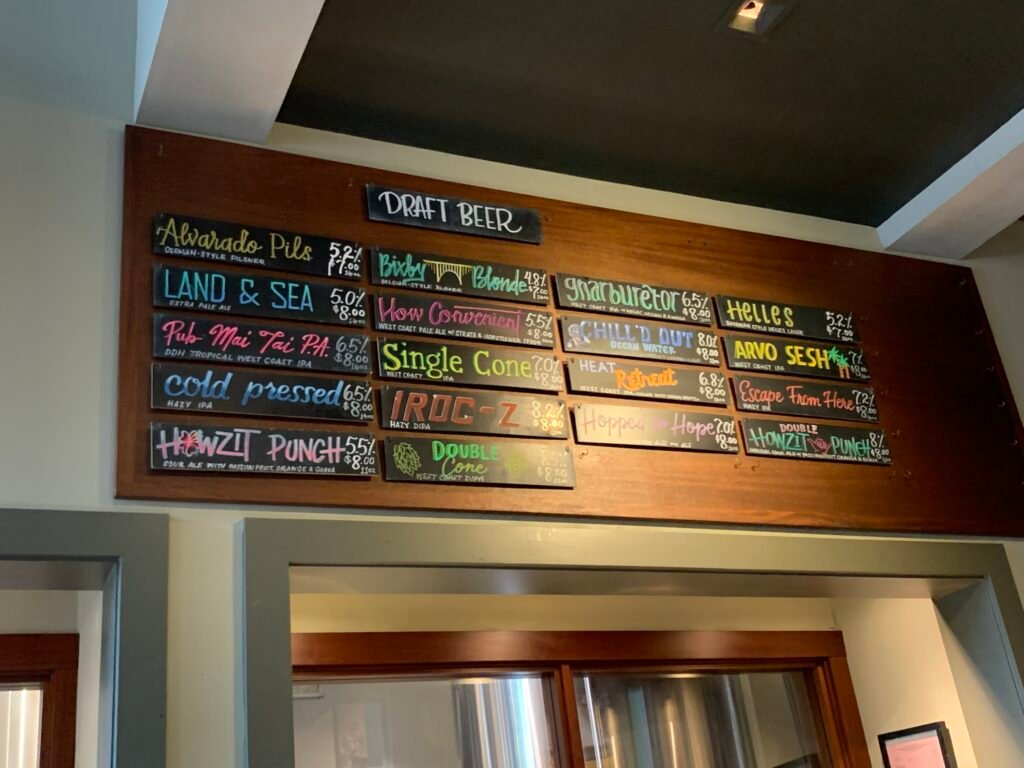 DRAFT BEER
Alvarado Pils 5.2%
GERMAN-STYLE PILSNER $7.00
16oz
LAND & SEA 5.0%
EXTRA PALE ALE $8.00
16oz
Pub Mai Tai P.A. 6.5%
DDH TROPICAL WEST COAST IPA $8.00
16oz
cold pressed 6.5%
HAZY IPA $8.00
16oz
HOWZIT PUNCH 5.5%
SOUR ALE WITH PASSION FRUIT, ORANGE & GUAVA $8.00
11oz
Bixby Blonde 4.8%
BELGIAN-STYLE BLONDE $7.00
16oz
How Convenient 5.5%
WEST COAST PALE ALE W/ STRATA & $8.00
Single Cone 7.0%
WEST COAST IPA $8.00
16oz
IROC-Z 8.2%
HAZY DIPA $8.00
DOUBLE
Cone
WEST COAST DIPA $8.00
gnarburetor 6.5%
WEST COAST IPA $8.00
CHILL'D OUT 8.0%
OCEAN WATER $9.00
HEAT
Retreat 6.8%
WEST COAST IPA $8.00
Hopped for Hope 7.0%
$8.00
HELLES 5.2%
BAVARIAN STYLE HELLES LAGER $7.00
ARVO SESH
WEST COAST IPA
Escape From Here 7.2%
HAZY IPA $8.00
DOUBLE
HOWZIT PUNCH 8%
$8.00